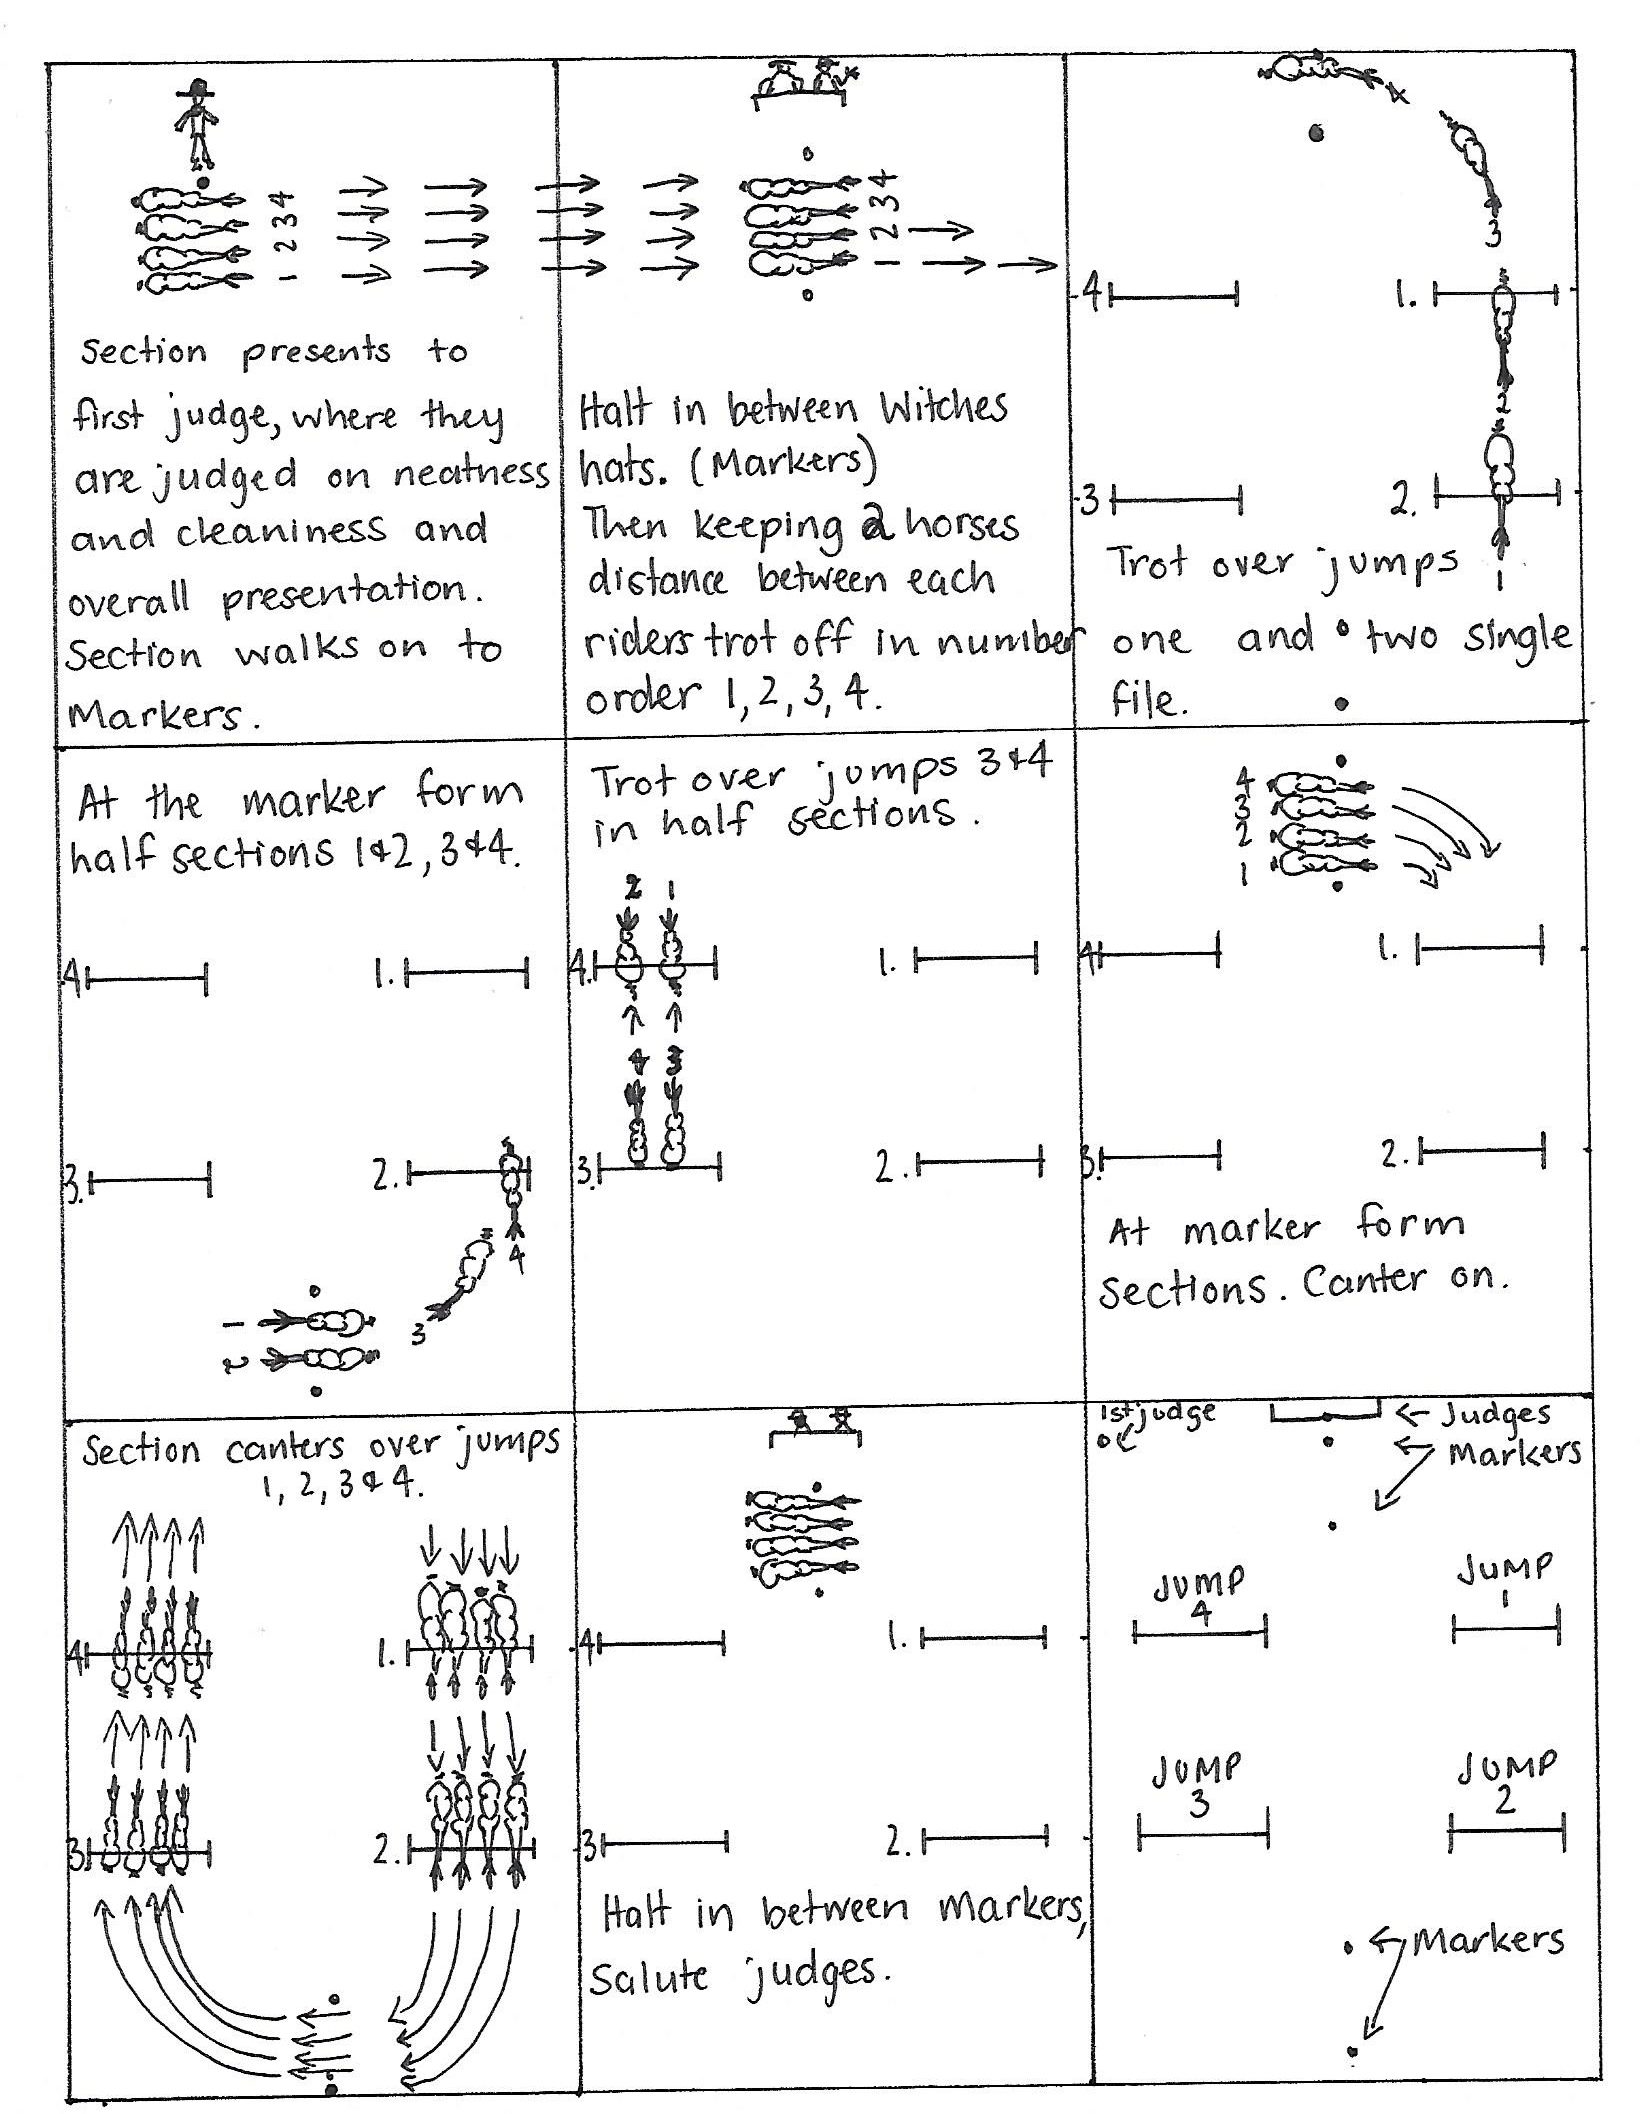 4
3
2
1
Section presents to
first judge, where they
are judged on neatness
and cleaniness and
overall presentation.
Section walks on to
Markers.
4
3
2
1
Halt in between Witches
hats. (Markers)
Then keeping 2 horses
distance between each
riders trot off in number
order 1, 2, 3, 4.
4
3
4
1.
2
3
2.
1
Trot over jumps
one and two single
file.
At the marker form
half sections 1&2, 3&4.
4
1.
3.
2.
4
3
1
2
Trot over jumps 3&4
in half sections.
2 1
4.
1.
4 3
3.
2.
4
3
2
1
4
1.
3.
2.
At marker form
sections. Canter on.
Section canters over jumps
1, 2, 3 & 4.
4
1.
3.
2.
4
1.
3
2.
Halt in between markers,
Salute judges.
1st judge
Judges
Markers
JUMP
4
JUMP
1
JUMP
3
JUMP
2
Markers